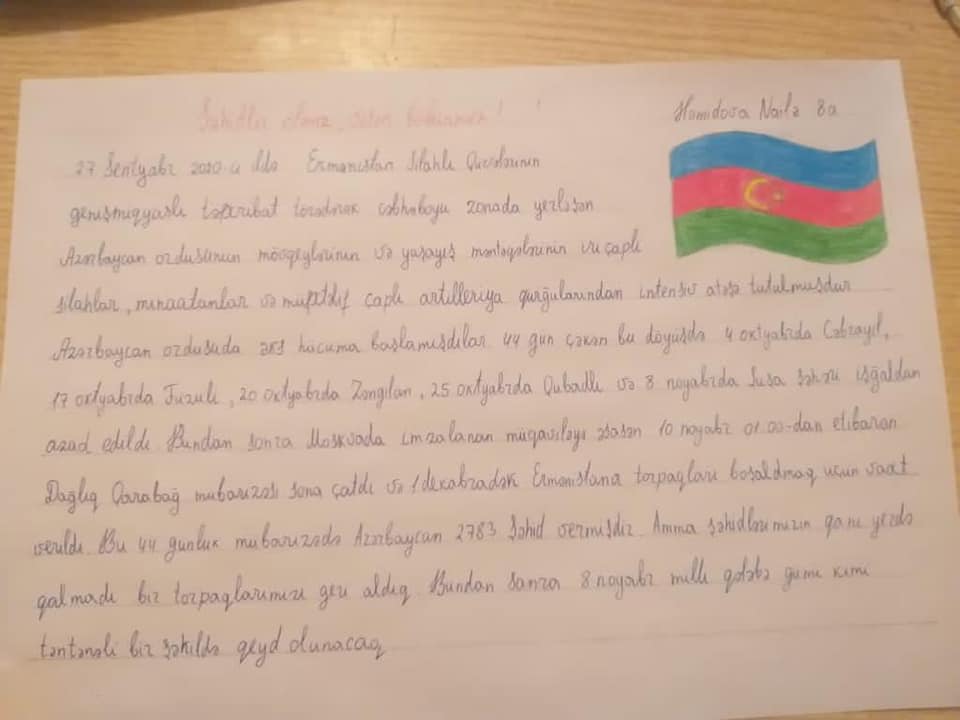 Şəhidlər ölməz, Vətən bölünməz!
Həmidova Nailə 8a
27 Sentyabr 2020-ci ildə Ermənistan Silahlı Qüvvələrinin
genişmiqyaslı təxribat törədərək cəbhəboyu zonada yerləşən
Azərbaycan ordusunun mövqeylərinin və yaşayış məntəqələrinin iri çaplı
silahlar, minaatanlar və müxtəlif çaplı artilleriya qurğularından intensiv atəşə tutulmuşdur
Azərbaycan ordusuda əks hücuma başlamışdılar. 44 gün çəkən bu döyüşdə 4 oktyabrda Cəbrayıl,
17 oktyabrda Füzuli, 20 oktyabrda Zəngilan, 25 oktyabrda Qubadlı və 8 noyabrda Şuşa şəhəri işğaldan
azad edildi. Bundan sonra Moskvada imzalanan müqaviləyə əsasən 10 noyabr 01.00-dan etibarən
Dağlıq Qarabağ mübarizəsi sona çatdı və 1 dekabradək Ermənistana torpaqları boşaldmaq üçün vaxt
verildi. Bu 44 günlük mübarizədə Azərbaycan 2783 şəhid vermişdir. Amma şəhidlərimizin qanı yerdə
qalmadı biz torpaqlarımızı geri aldıq. Bundan sonra 8 noyabr milli qələbə günü kimi
təntənəli bir şəkildə qeyd olunacaq